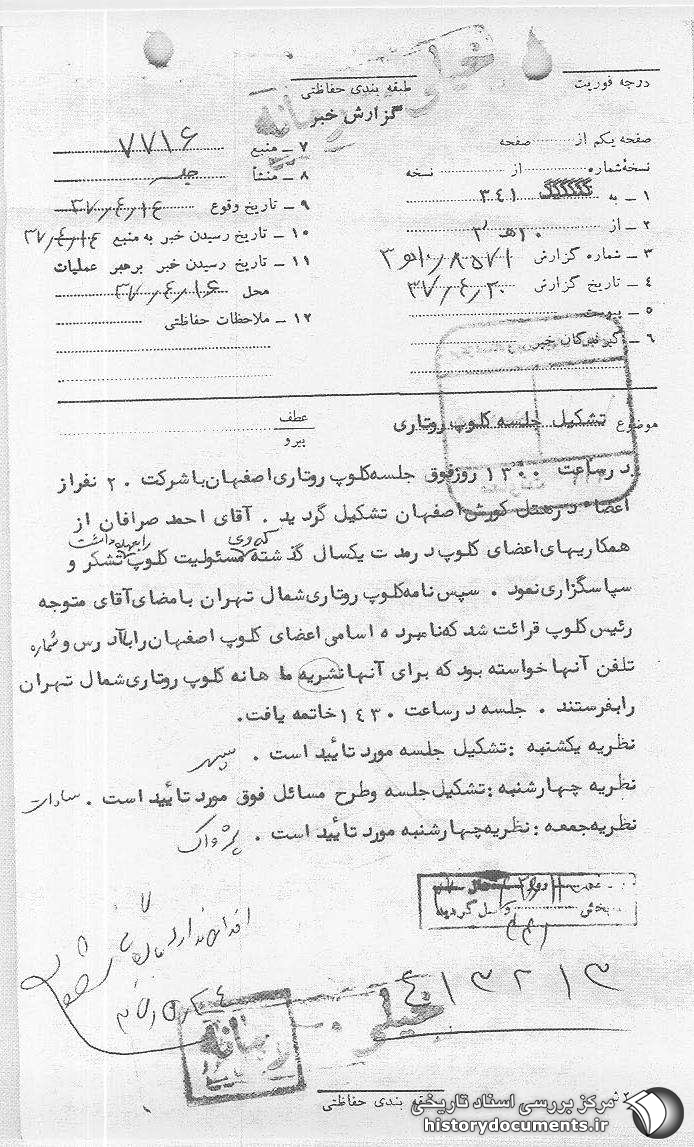 درجه فوریت
طبقه بندی حفاظتی
گزارش خبر
خیلی محرمانه
صفحه یکم از صفحه
نسخه شماره از نسخه
۱ ـ به ۳٤۱
۲ ـ از ۱۰ هـ ۳
۳ ـ شماره گزارش
٤ ـ تاریخ گزارش ۳۷/٤/۲۰
۵ ـ پیوست
۶ ـ گیرندگان خبر
۷ ـ منبع ۷۷۱۶
۸ ـ منشأ جلسه
۹ ـ تاریخ وقوع ۳۷/٤/۱٤
۱۰ ـ تاریخ رسیدن خبر به منبع ۳۷/٤/۱٤
۱۱ ـ تاریخ رسیدن خبر برهبر عملیات
محل ۳۷/٤/۱۶
۱۲ ـ ملاحظات حفاظتی
موضوع تشکیل جلسه کلوپ روتاری
عطف
پیرو
در ساعت ۱۳۰۰ روز فوق جلسه کلوپ روتاری اصفهان با شرکت ۲۰ نفر از
اعضاء در هتل کورش اصفهان تشکیل گردید . آقای احمد صرافان از
همکاریهای اعضای کلوپ در مدت یکسال گذشته که وی مسئولیت کلوپ را بعهده داشت تشکر و
سپاسگزاری نمود . سپس نامه کلوپ روتاری شمال تهران بامضای آقای متوجه
رئیس کلوپ قرائت شد که نامبرده اسامی اعضای کلوپ اصفهان را با آدرس و شماره
تلفن آنها خواسته بود که برای آنها نشریه ما هانه کلوپ روتاری شمال تهران
را بفرستند . جلسه در ساعت ۱٤۳۰ خاتمه یافت.
نظریه یکشنبه : تشکیل جلسه مورد تایید است . سپهر
نظریه چهارشنبه : تشکیل جلسه وطرح مسائل فوق مورد تایید است . سادات
نظریه جمعه : نظریه چهارشنبه مورد تایید است . پژواک
بخش واصل گردید
اقدامی ندارد
٤۱۳۲۱۳
خیلی محرمانه
طبقه بندی حفاظتی
مرکز بررسی اسناد تاریخی
historydocuments.ir